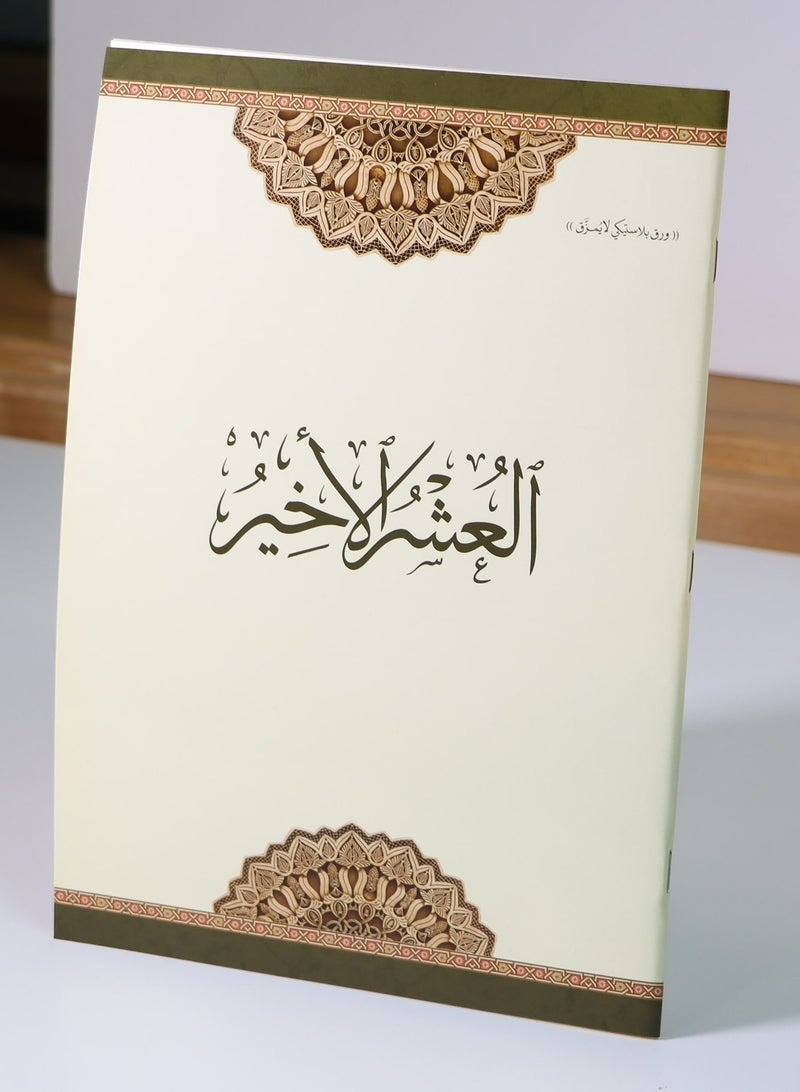 (( ورق بلاستيكي لا يُمزَّق ))
ٱلعُشْرُ ٱلأَخِيرُ